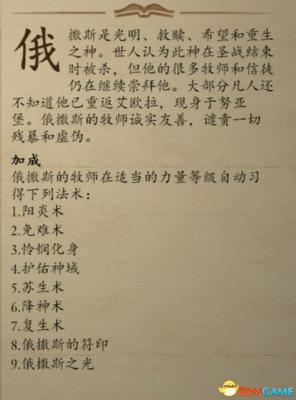 俄撒斯是光明、救赎、希望和重生
之神。世人认为此神在圣战结束
时被杀，但他的很多牧师和信徒
仍在继续崇拜他。大部分凡人还
不知道他已重返艾欧拉，现身于努亚
堡。俄撒斯的牧师诚实友善，谴责一切
残暴和虚伪。
加成
俄撒斯的牧师在适当的力量等级自动习
得下列法术：
1.阳炎术
2.免难术
3.怜悯化身
4.护佑神域
5.苏生术
6.降神术
7.复生术
8.俄撒斯的符印
9.俄撒斯之光